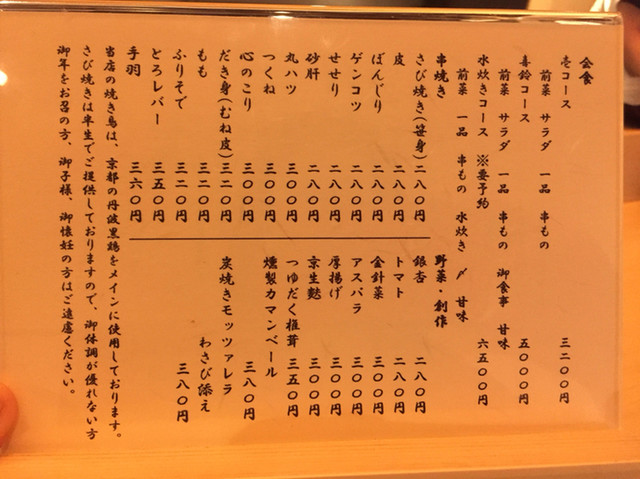 会食
壱コース 三二〇〇円
前菜 サラダ 一品 串もの
喜鈴コース 五〇〇〇円
前菜 サラダ 一品 串もの 御食事 甘味
水炊きコース ※要予約 六五〇〇円
前菜 一品 串もの 水炊き 〆 甘味
串焼き
さび焼き(笹身) 二八〇円
皮 二八〇円
ぼんじり 二八〇円
ゲンコツ 二八〇円
せせり 二八〇円
砂肝 二八〇円
丸ハツ 三〇〇円
つくね 三〇〇円
心のこり 三〇〇円
だき身(むね皮) 三二〇円
もも 三二〇円
ふりそで 三二〇円
とろレバー 三五〇円
手羽 三六〇円
野菜・創作
銀杏 二八〇円
トマト 二八〇円
金針菜 三〇〇円
アスパラ 三〇〇円
厚揚げ 三〇〇円
京生麩 三〇〇円
つゆだく椎茸 三五〇円
燻製カマンベール
三八〇円
炭焼きモッツァレラ
わさび添え
三八〇円
当店の焼き鳥は、京都の丹波黒鶏をメインに使用しております。
さび焼きは半生でご提供しておりますので、御体調が優れない方
御年をお召の方、御子様、御懐妊の方はご遠慮ください。